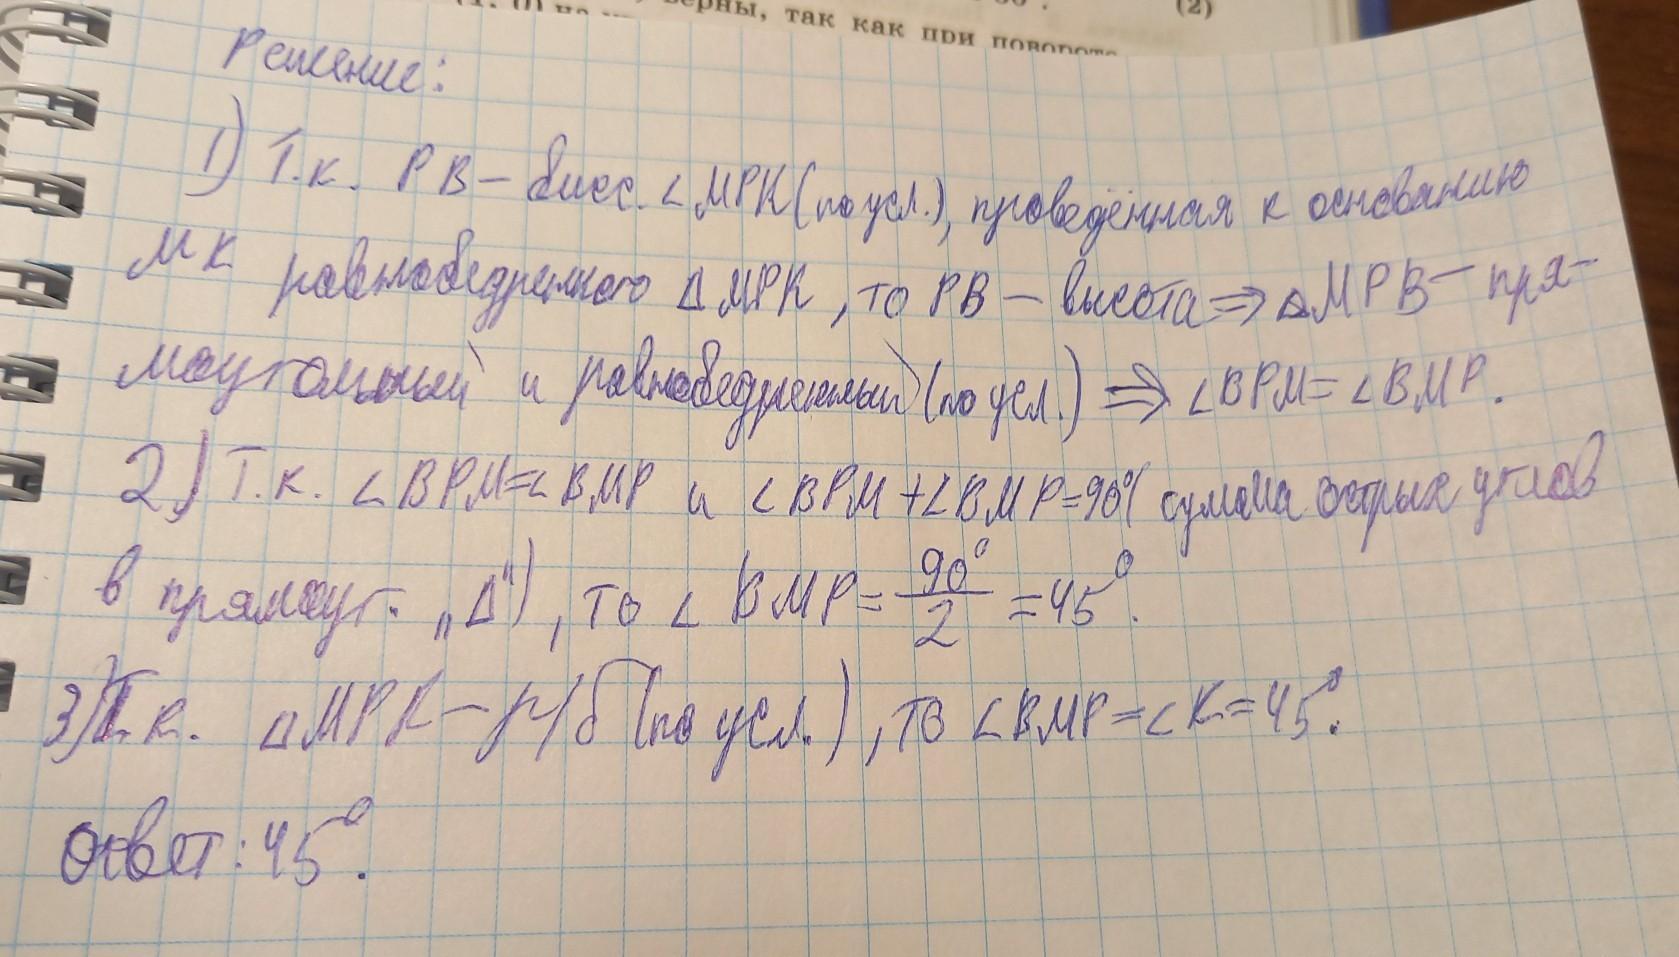 (2)
верны, так как при повороте
Решение:
1) Т.к. PB – бисс. ∠MPK (по усл.), проведённая к основанию
MK равнобедренного ΔMPK, то PB – высота ⇒ ΔMPB – пря-
моугольный и равнобедренный (по усл.) ⇒ ∠BPM = ∠BMP.
2) Т.к. ∠BPM = ∠BMP и ∠BPM + ∠BMP = 90° (сумма острых углов
в прямоуг. „Δ"), то ∠BMP = 90°/2 = 45°.
3) Т.к. ΔMPK – р/б (по усл.), то ∠BMP = ∠K = 45°.
Ответ: 45°.